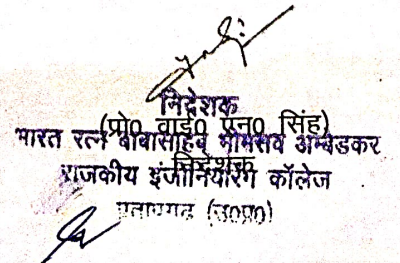 निदेशक
(प्रो० वाई० एन० सिंह)
भारत रत्न बाबासाहेब भीमराव अम्बेडकर
निदेशक
राजकीय इंजीनियरिंग कॉलेज
प्रतापगढ़ (उ०प्र०)